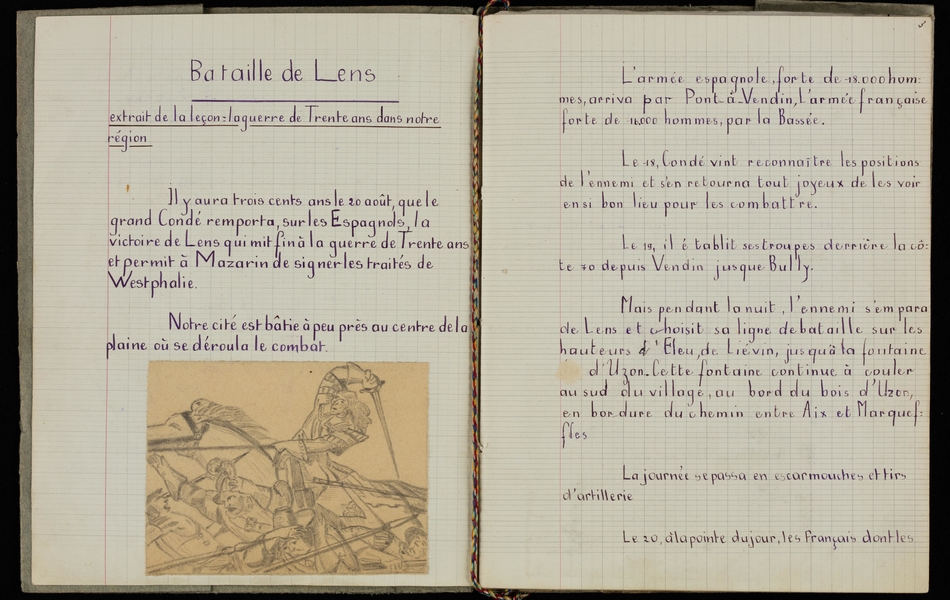 Bataille de Lens
extrait de la leçon: la guerre de Trente ans dans notre
région
Il y aura trois cents ans le 20 août, que le
grand Condé remporta, sur les Espagnols, la
victoire de Lens qui mit fin à la guerre de Trente ans
et permit à Mazarin de signer les traités de
Westphalie.
Notre cité est bâtie à peu près au centre de la
plaine où se déroula le combat.
5
L'armée espagnole, forte de 18.000 hom-
mes, arriva par Pont-à-Vendin, l'armée française
forte de 16.000 hommes, par la Bassée.
Le 18, Condé vint reconnaître les positions
de l'ennemi et s'en retourna tout joyeux de les voir
en si bon lieu pour les combattre.
Le 19, il établit ses troupes derrière la cô-
te 70 depuis Vendin jusque Bully.
Mais pendant la nuit, l'ennemi s'empara
de Lens et choisit sa ligne de bataille sur les
hauteurs d'Eleu, de Liévin, jusqu'à la fontaine
d'Uzon. Cette fontaine continue à couler
au sud du village, au bord du bois d'Uzon,
en bordure du chemin entre Aix et Marquef-
fles
La journée se passa en escarmouches et tirs
d'artillerie
Le 20, à la pointe du jour, les Français dont les